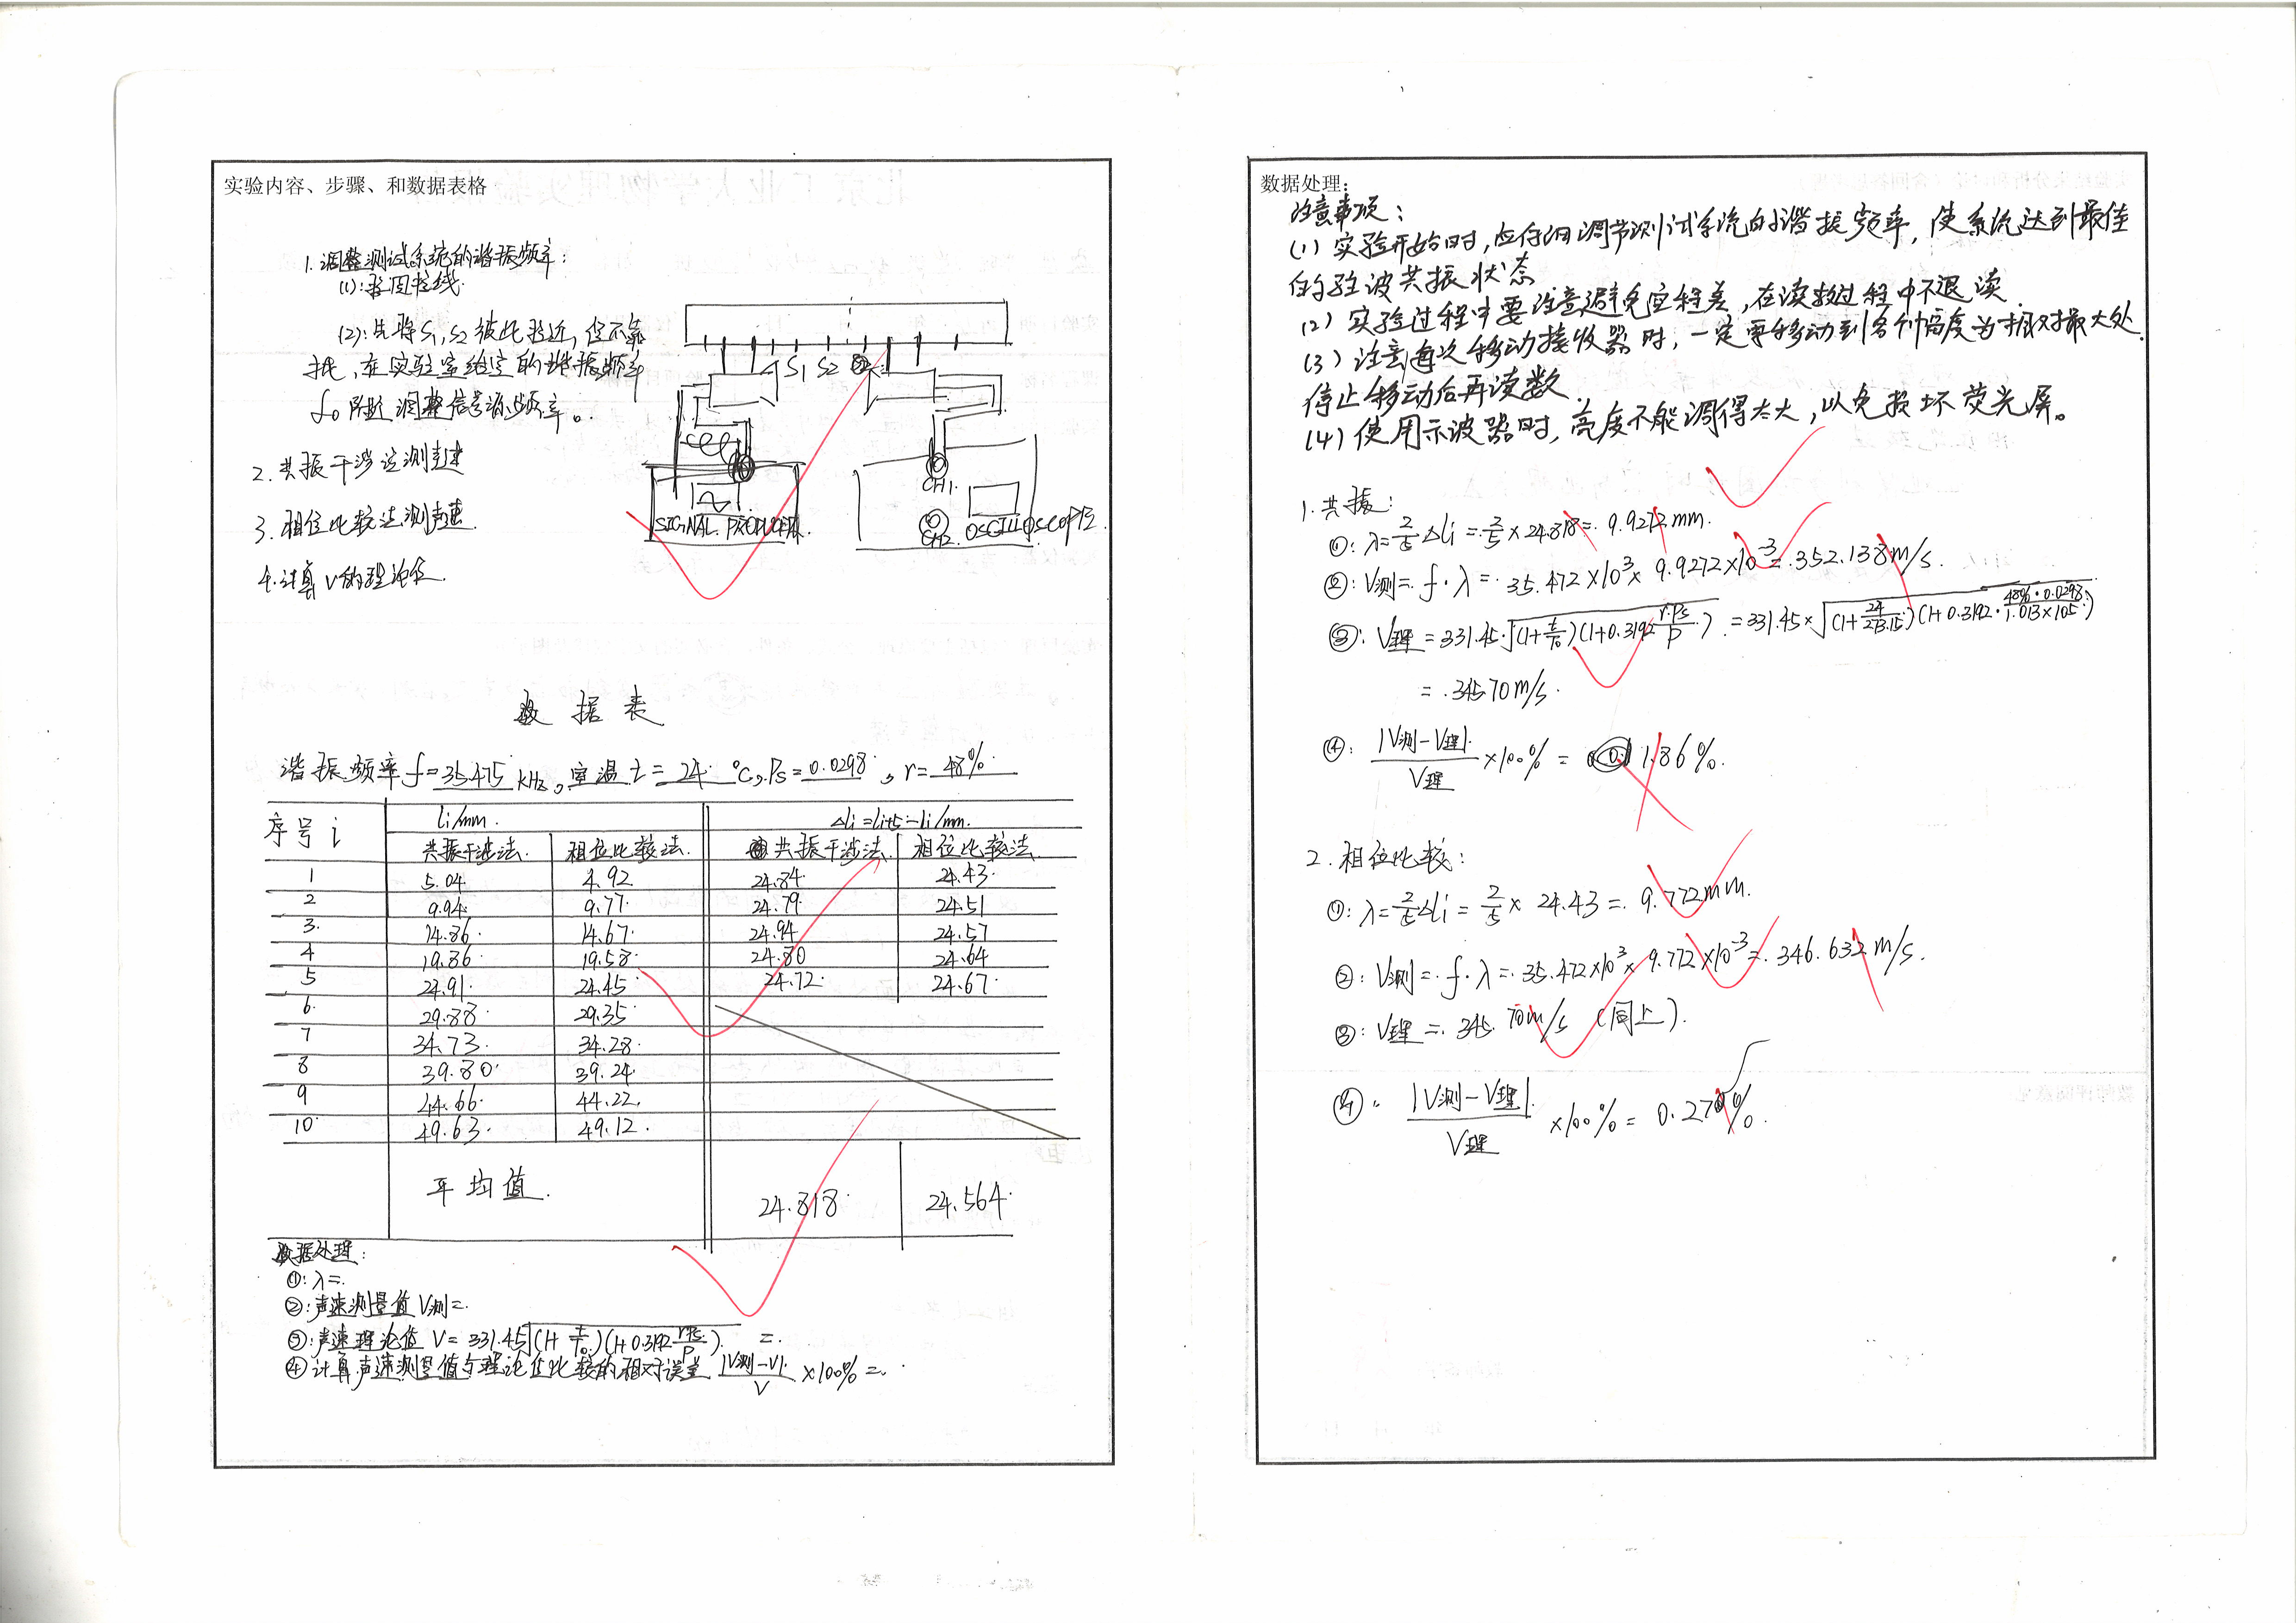 实验内容、步骤、和数据表格
1. 调整测试系统的谐振频率:
(1): 按图接线.
(2): 先将S1, S2彼此靠近, 但不紧
挨, 在实验室给定的谐振频率
f0附近调整信号源频率。
2. 共振干涉法测声速
3. 相位比较法测声速.
4. 计算V的理论值.
S1 S2
SIGNAL PRODUCER.
CH1.
CH2. OSCILLOSCOPE.
数据表
谐振频率 f=35.475 kHz, 室温 t=24 ℃, Ps=0.0298, r=48%
序号i li/mm. Δli=li+5-li/mm.
共振干涉法. 相位比较法. 共振干涉法. 相位比较法.
1 5.04 4.92 24.84 24.43
2 9.94 9.77 24.79 24.51
3. 14.86 14.67 24.94 24.57
4 19.86 19.58 24.80 24.64
5 24.91 24.45 24.72 24.67
6. 29.88 29.35
7 34.73 34.28
8 39.80 39.24
9 44.66 44.22
10 49.63 49.12
平均值. 24.818 24.564
数据处理:
①: λ=.
②: 声速测量值V测=.
③: 声速理论值 V=331.45√(1+t/T0)(1+0.3192 rPs/P) =.
④ 计算声速测量值与理论值比较的相对误差 |V测-V|/V ×100%=.
数据处理:
注意事项:
(1) 实验开始时, 应仔细调节测试系统的谐振频率, 使系统达到最佳
的驻波共振状态
(2) 实验过程中要注意避免空程差, 在读数过程中不退读.
(3) 注意每次移动接收器时, 一定要移动到各个幅度为极对最大处.
停止移动后再读数.
(4) 使用示波器时, 亮度不能调得太大, 以免损坏荧光屏。
1. 共振:
①: λ=2/5 Δli=2/5×24.818=9.9272mm.
②: V测=f·λ=35.472×10³×9.9272×10⁻³=352.138m/s.
③: V理=331.45·√(1+t/T0)(1+0.3192 r·Ps/P) =331.45×√(1+24/273.15)(1+0.3192·48%·0.0298/1.013×10⁵)
=345.70m/s.
④: |V测-V理|/V理 ×100%=1.86%.
2. 相位比较:
①: λ=2/5Δli=2/5×24.43=9.772mm.
②: V测=f·λ=35.472×10³×9.772×10⁻³=346.632m/s.
③: V理=345.70m/s (同上).
④. |V测-V理|/V理 ×100%=0.270%.